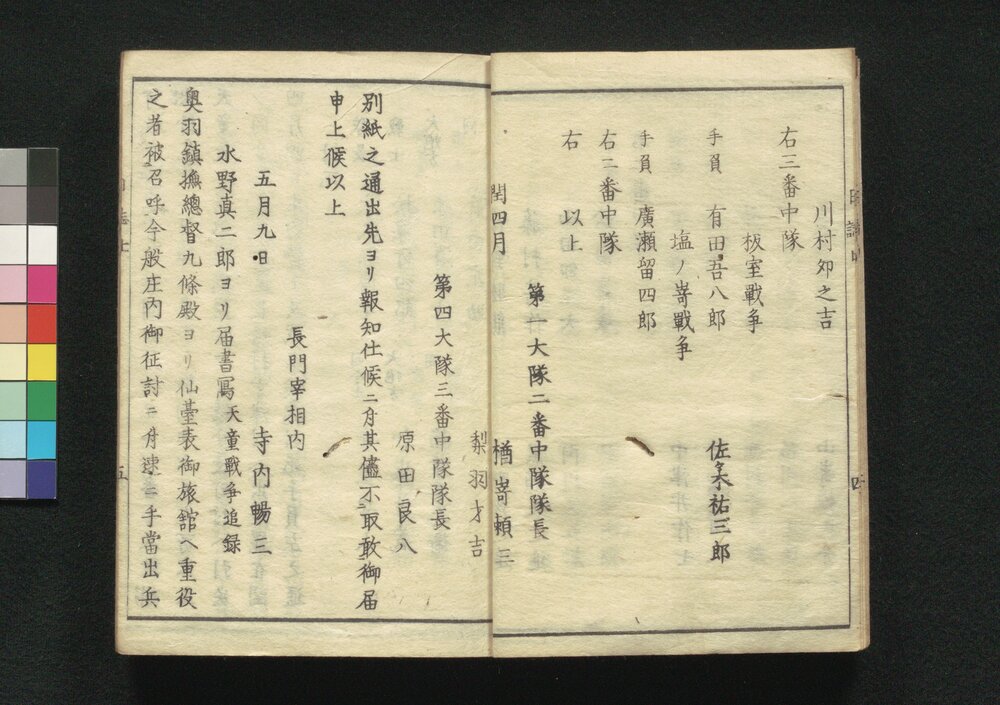 川村卯之吉
右三番中隊
板室戰爭
手負 有田吾八郎 佐々木祐三郎
塩ノ嵜戰爭
手負 廣瀬留四郎
右二番中隊
右 以上
第一大隊二番中隊隊長
閏四月 楢嵜頼三
梨羽才吉
第四大隊三番中隊隊長
原田良八
別紙之通出先ヨリ報知仕候ニ付其儘不取敢御届
申上候以上
長門宰相内
五月九日 寺内暢三
水野真二郎ヨリ届書寫天童戰争追録
奥羽鎮撫總督九條殿ヨリ仙臺表御旅舘ヘ重役
之者被召呼今般庄内御征討ニ付速ニ手當出兵